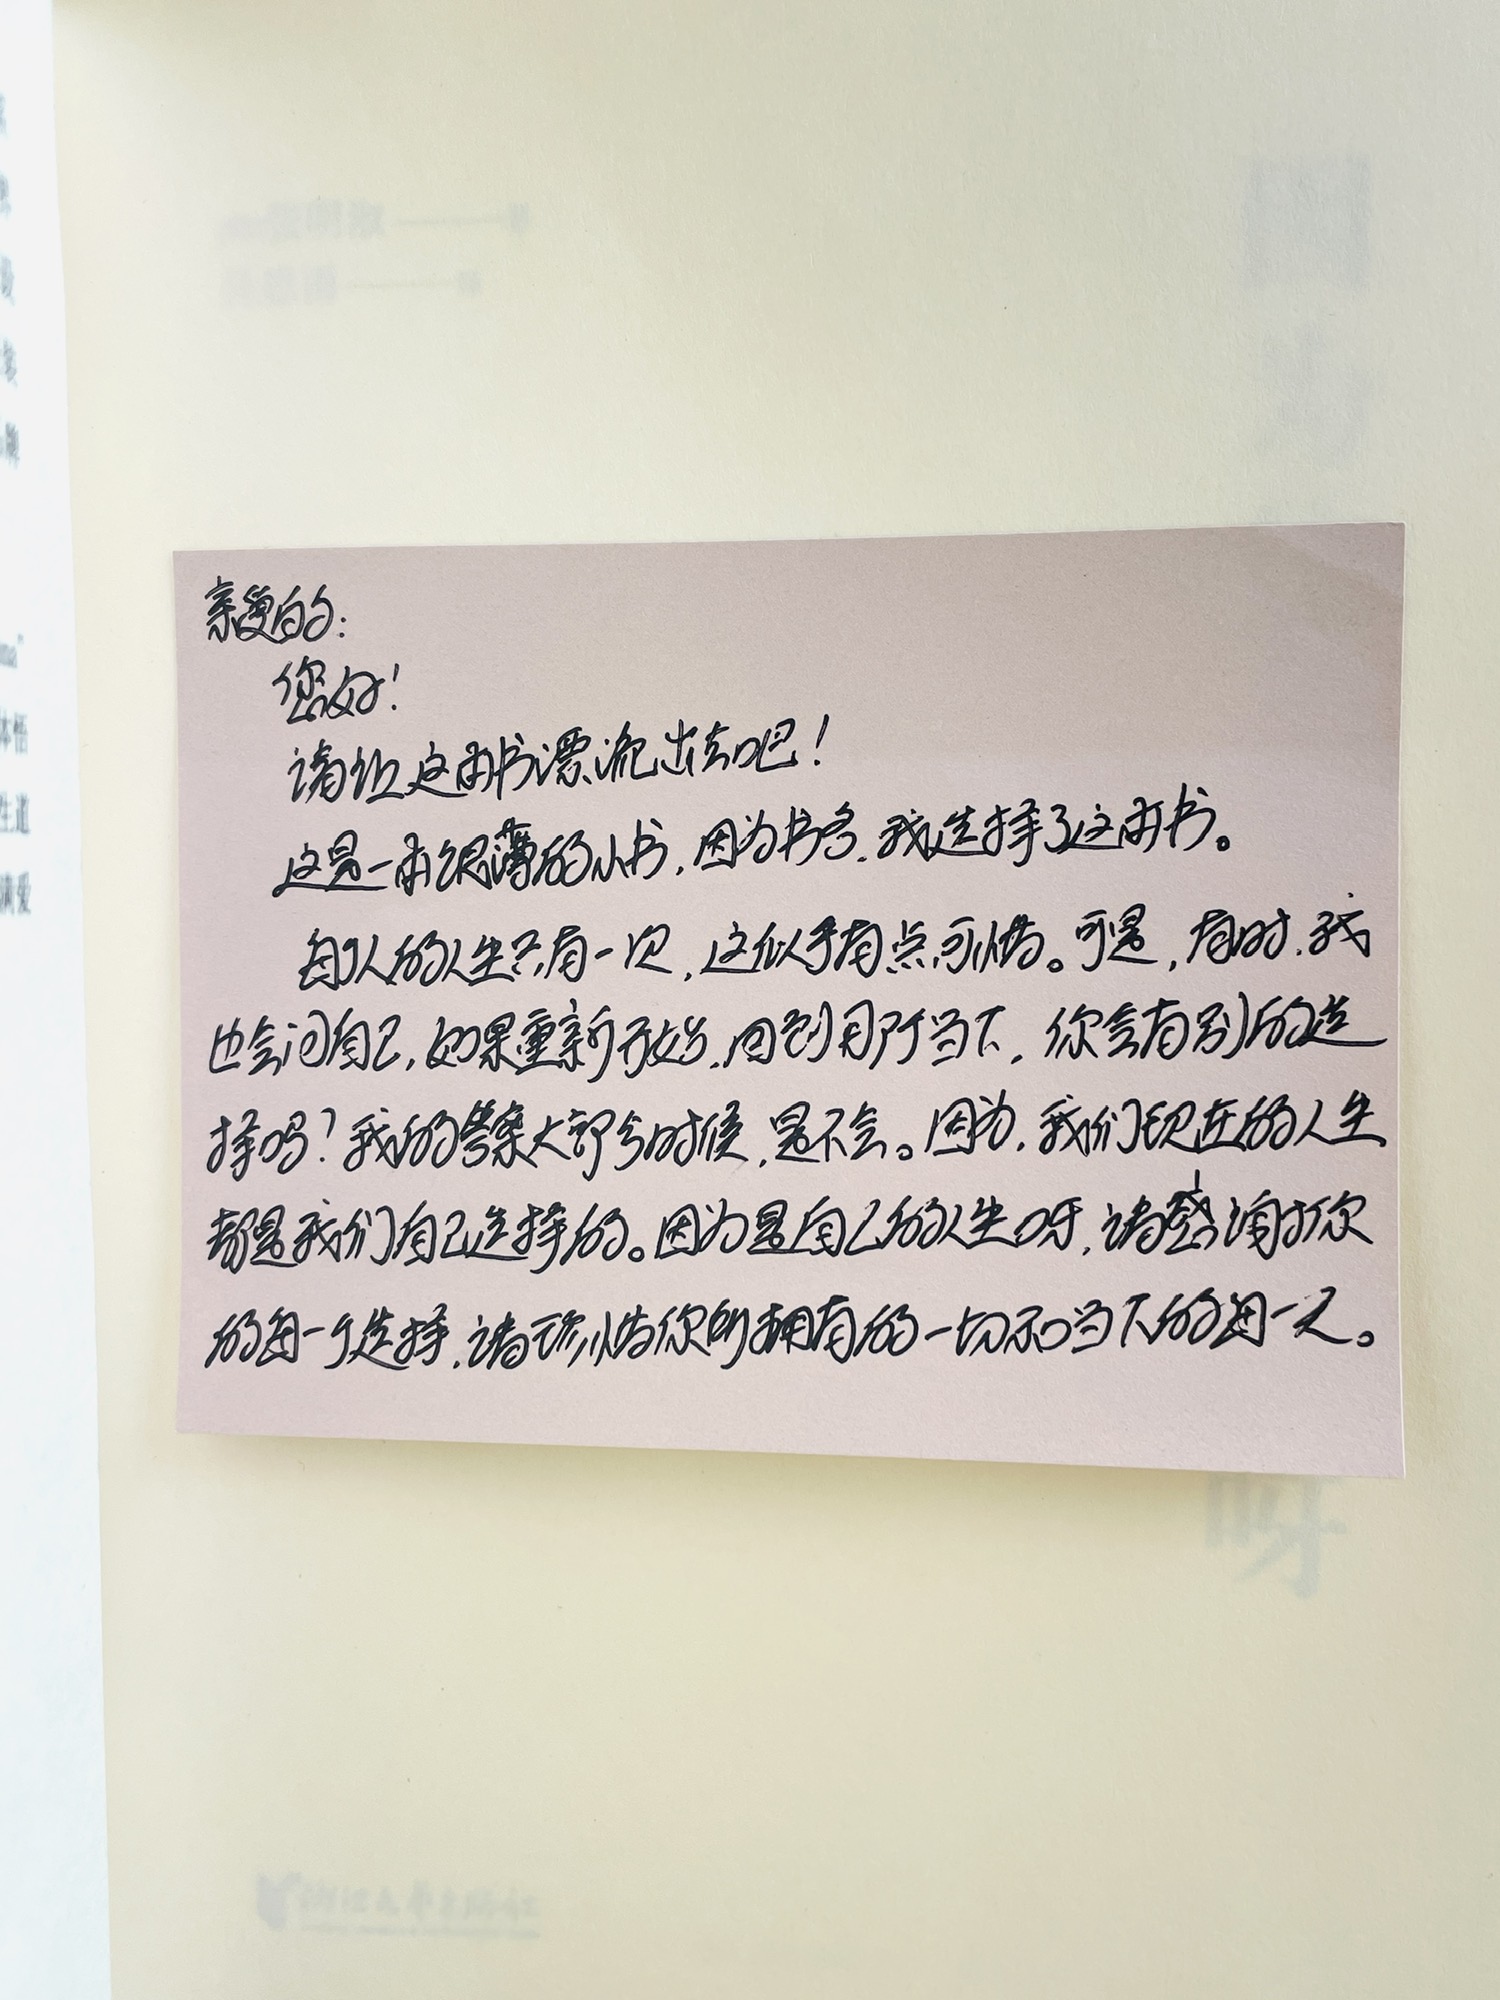 亲爱的:
您好!
请让这本书漂流出去吧!
这是一本很薄的小书,因为书名,我选择了这本书。
每个人的人生只有一次,这似乎有点可惜。可是,有时,我
也会问自己,如果重新开始,回到那个当下,你会有别的选
择吗?我的答案大部分时候,是不会。因为,我们现在的人生
都是我们自己选择的。因为是自己的人生呀,请感谢你
的每一个选择,请珍惜你所拥有的一切和当下的每一天。
呀
ma"
体悟
生道
满爱